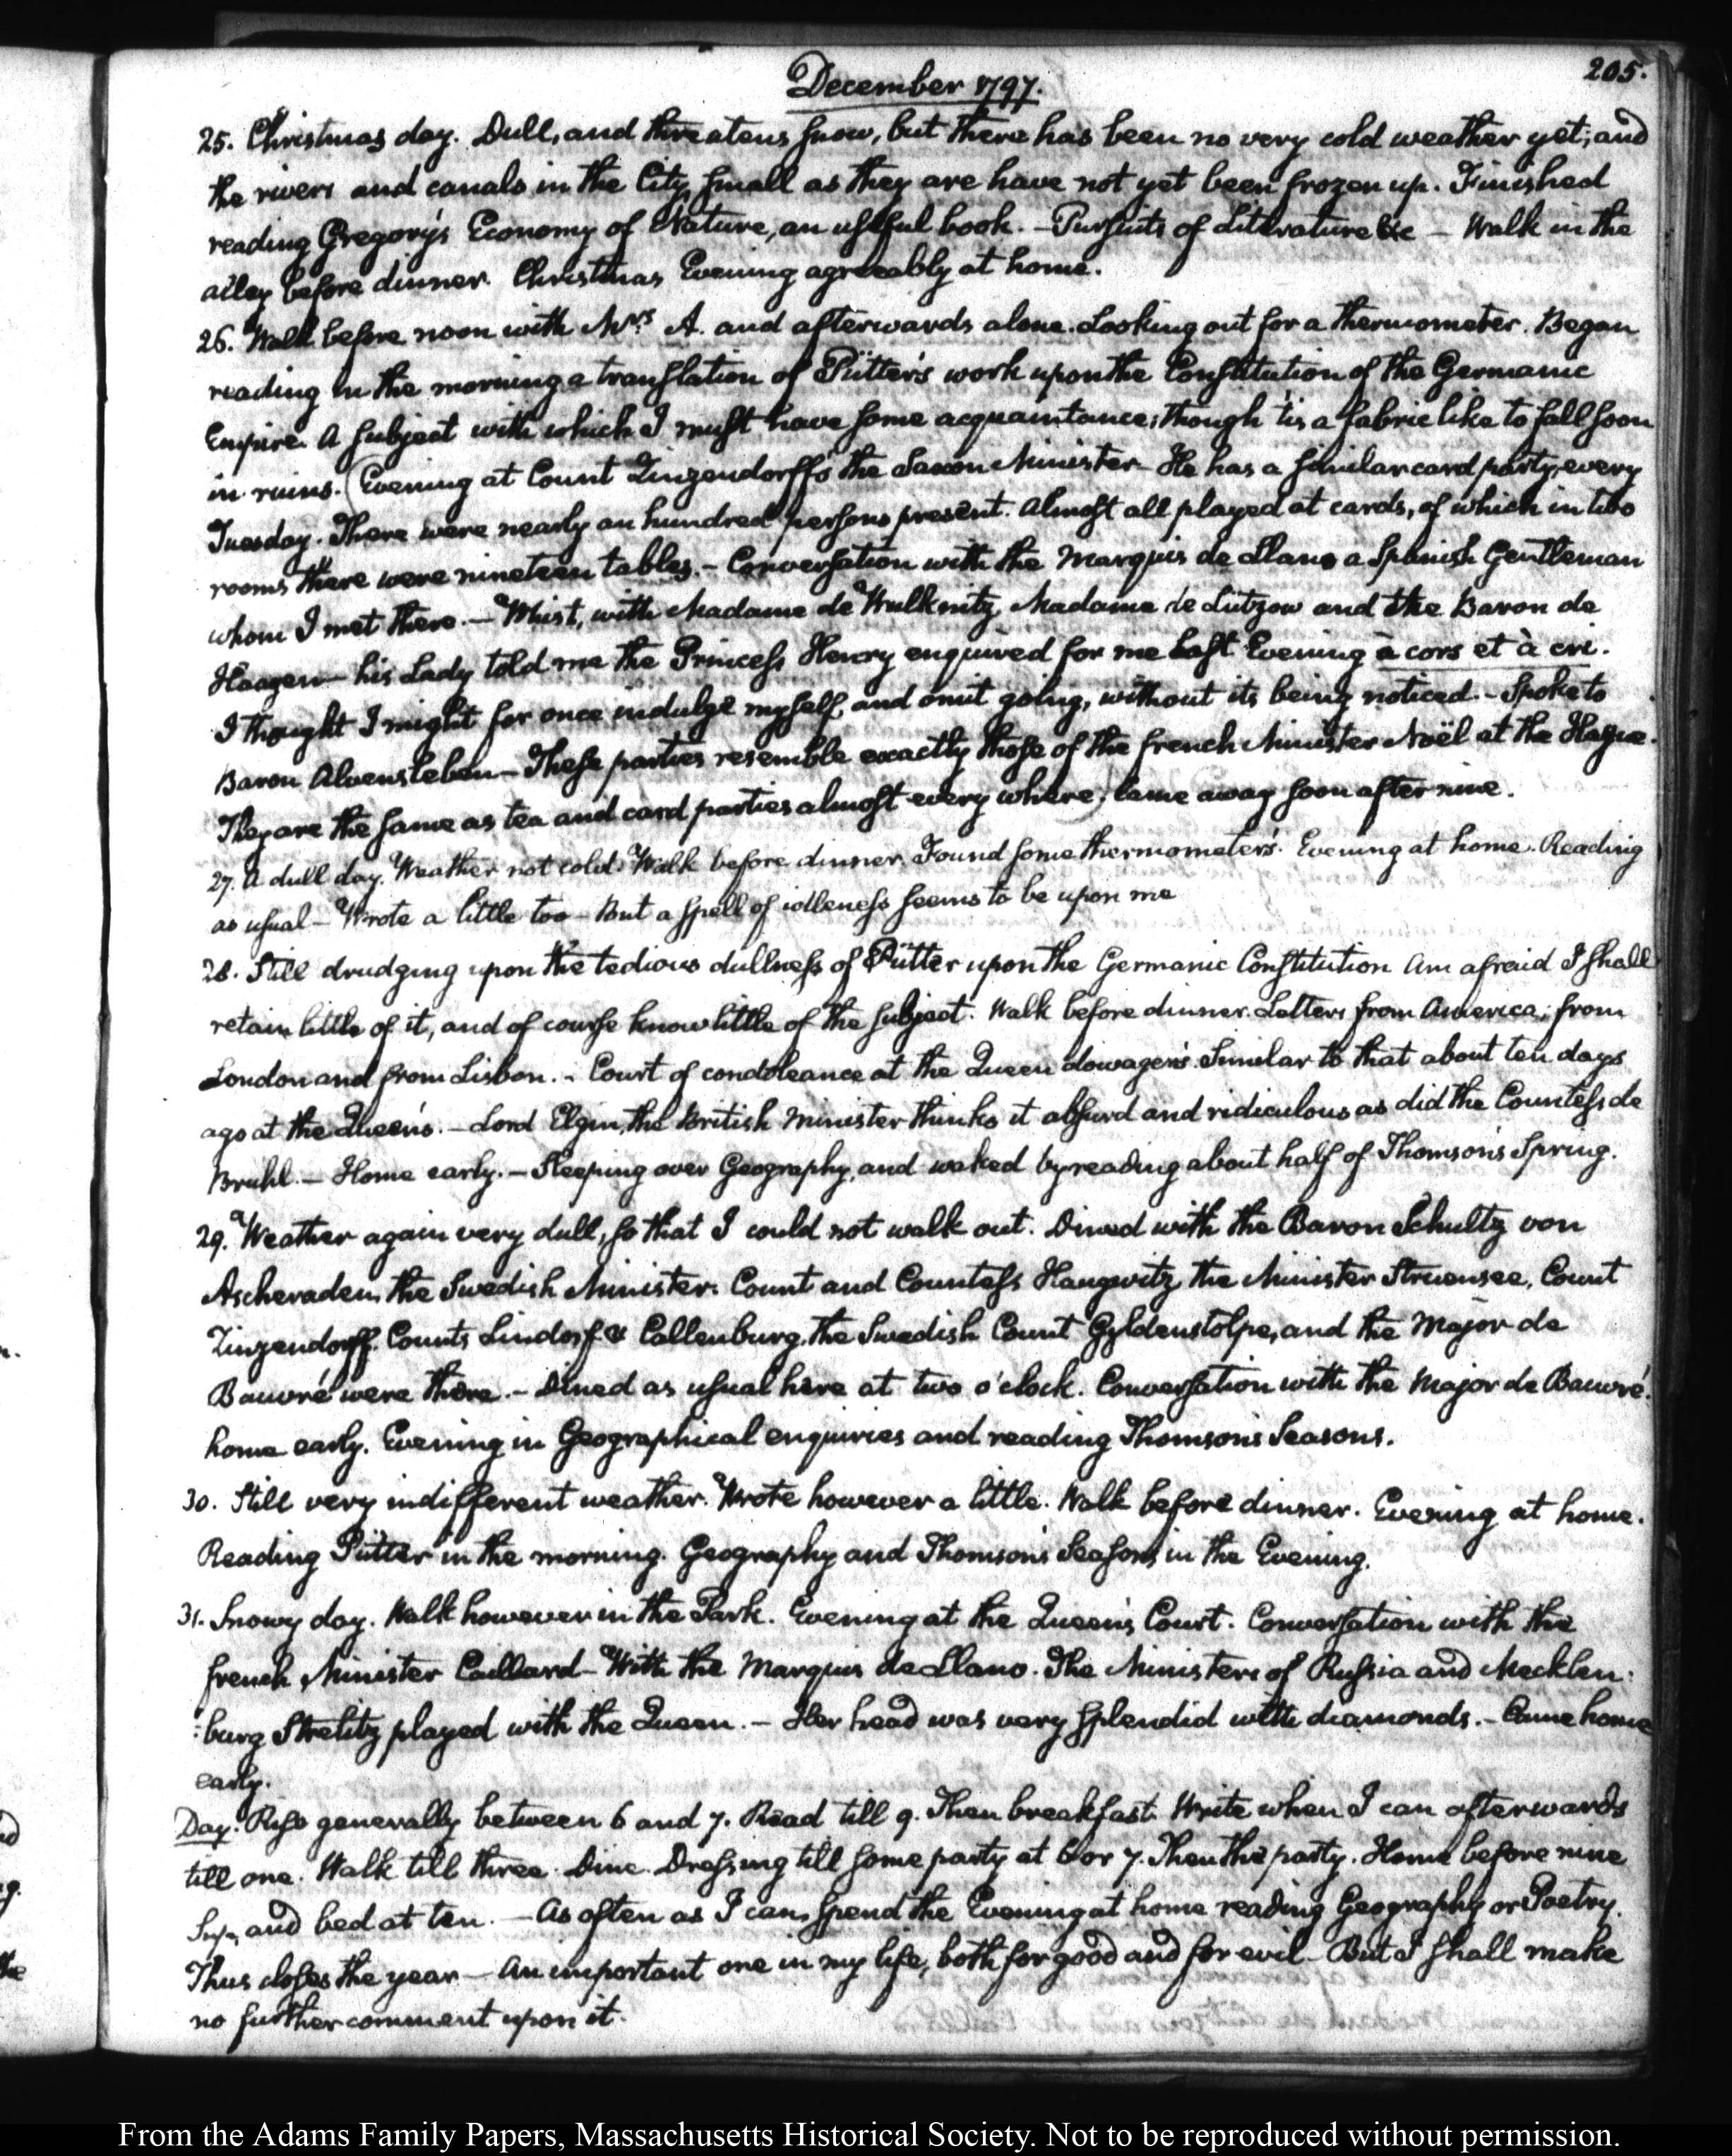 205.
December 1797.
25. Christmas day. Dull, and threatens snow, but there has been no very cold weather yet; and
the rivers and canals in the City, small as they are have not yet been frozen up. Finished
reading Gregory's Economy of Nature, an useful book. - Pursuits of Literature &c - Walk in the
alley before dinner. Christmas Evening agreeably at home.
26. Walk before noon with Mrs. A. and afterwards alone. Looking out for a thermometer. Began
reading in the morning a translation of Pütter's work upon the Constitution of the Germanic
Empire. A subject with which I must have some acquaintance; though 'tis a fabric like to fall soon
in ruins. (Evening at Count Zinzendorff's the Saxon Minister - He has a similar card party, every
Tuesday. There were nearly an hundred persons present. Almost all played at cards, of which in two
rooms there were nineteen tables. - Conversation with the Marquis de Llano a Spanish Gentleman
whom I met there. - Whist, with Madame de Wulknitz, Madame de Lützow and the Baron de
Haagen - his Lady told me the Princess Henry enquired for me last Evening à cors et à cri.
I thought I might for once indulge myself, and omit going, without its being noticed. - Spoke to
Baron Alvensleben - These parties resemble exactly those of the french Minister Noël at the Hague.
They are the same as tea and card parties almost every where.) Came away soon after nine.
27. A dull day. Weather not cold. Walk before dinner. Found some thermometer's. Evening at home. Reading
as usual - Wrote a little too - But a spell of idleness seems to be upon me
28. Still drudging upon the tedious dullness of Pütter upon the Germanic Constitution Am afraid I shall
retain little of it, and of course know little of the subject. Walk before dinner. Letters from America; from
London and from Lisbon. - Court of condoleance at the Queen dowager's. Similar to that about ten days
ago at the Queen's. - Lord Elgin, the British Minister thinks it absurd and ridiculous as did the Countess de
Bruhl. - Home early. - Sleeping over Geography, and waked by reading about half of Thomson's Spring.
29. Weather again very dull, so that I could not walk out. Dined with the Baron Schultz von
Ascheraden, the Swedish Minister. Count and Countess Haugwitz, the Minister Struensee, Count
Zinzendorff. Counts Lindorf & Callenburg, the Swedish Count Gyldenstolpe, and the Major de
Bauvré were there. - Dined as usual here at two o'clock. Conversation with the Major de Bauvré.
home early. Evening in Geographical enquiries and reading Thomson's Seasons.
30. Still very indifferent weather. Wrote however a little. Walk before dinner. Evening at home.
Reading Pütter in the morning. Geography and Thomson's Seasons in the Evening.
31. Snowy day. Walk however in the Park. Evening at the Queen's Court. Conversation with the
french Minister Caillard - With the Marquis de Llano. The Ministers of Russia and Mecklen:
:burg Strelitz played with the Queen. - Her head was very splendid with diamonds. - Came home
early.
Day. Rise generally between 6 and 7. Read till 9. Then breakfast. Write when I can afterwards
till one. Walk till three. Dine. Dressing till some party at 6 or 7. Then the party. Home before nine
Sup, and bed at ten. - As often as I can, spend the Evening at home reading Geography or Poetry.
Thus closes the year - An important one in my life, both for good and for evil - But I shall make
no further comment upon it.
From the Adams Family Papers, Massachusetts Historical Society. Not to be reproduced without permission.